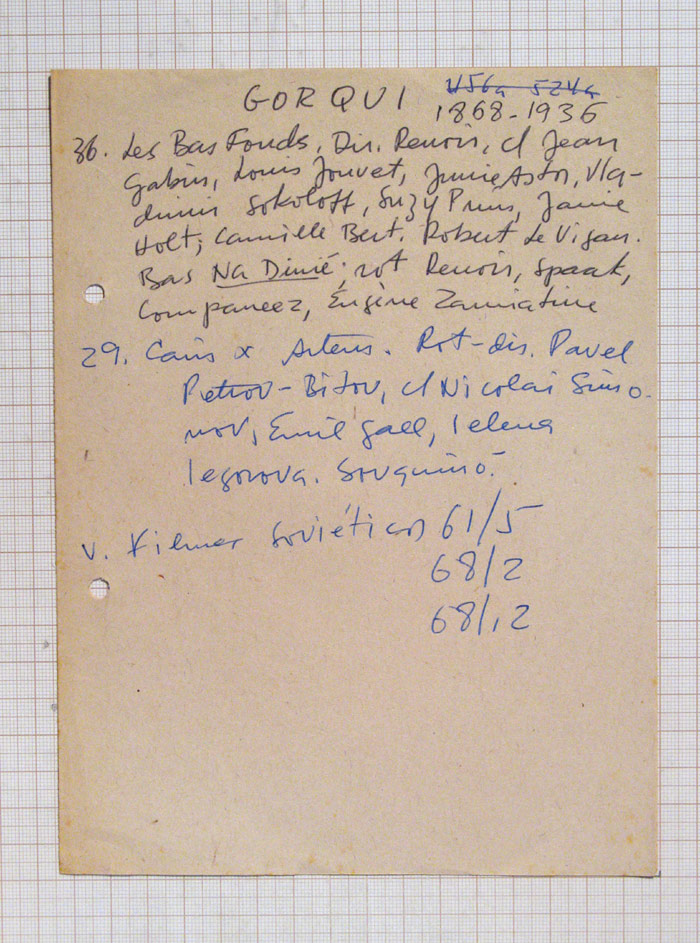 GORQUI 456a 524a
1868-1936
36. Les Bas Fonds, Dir. Renoir, c/ Jean
Gabin, Louis Jouvet, Junie Astor, Vla-
dimir Sokoloff, Suzy Prim, Janie
Holt; Camille Bert. Robert Le Vigan.
Bas Na Dinié; rot Renoir, Spaak,
Companeez, Eugène Zamiatine
29. Cain x Artens. Rot-dir. Pavel
Petrov-Bitov, c/ Nicolai Simo-
nov, Emil Gall, Ielena
Iegorova. Sovquinó.
v. Filmes Soviéticos 61/5
68/2
68/12